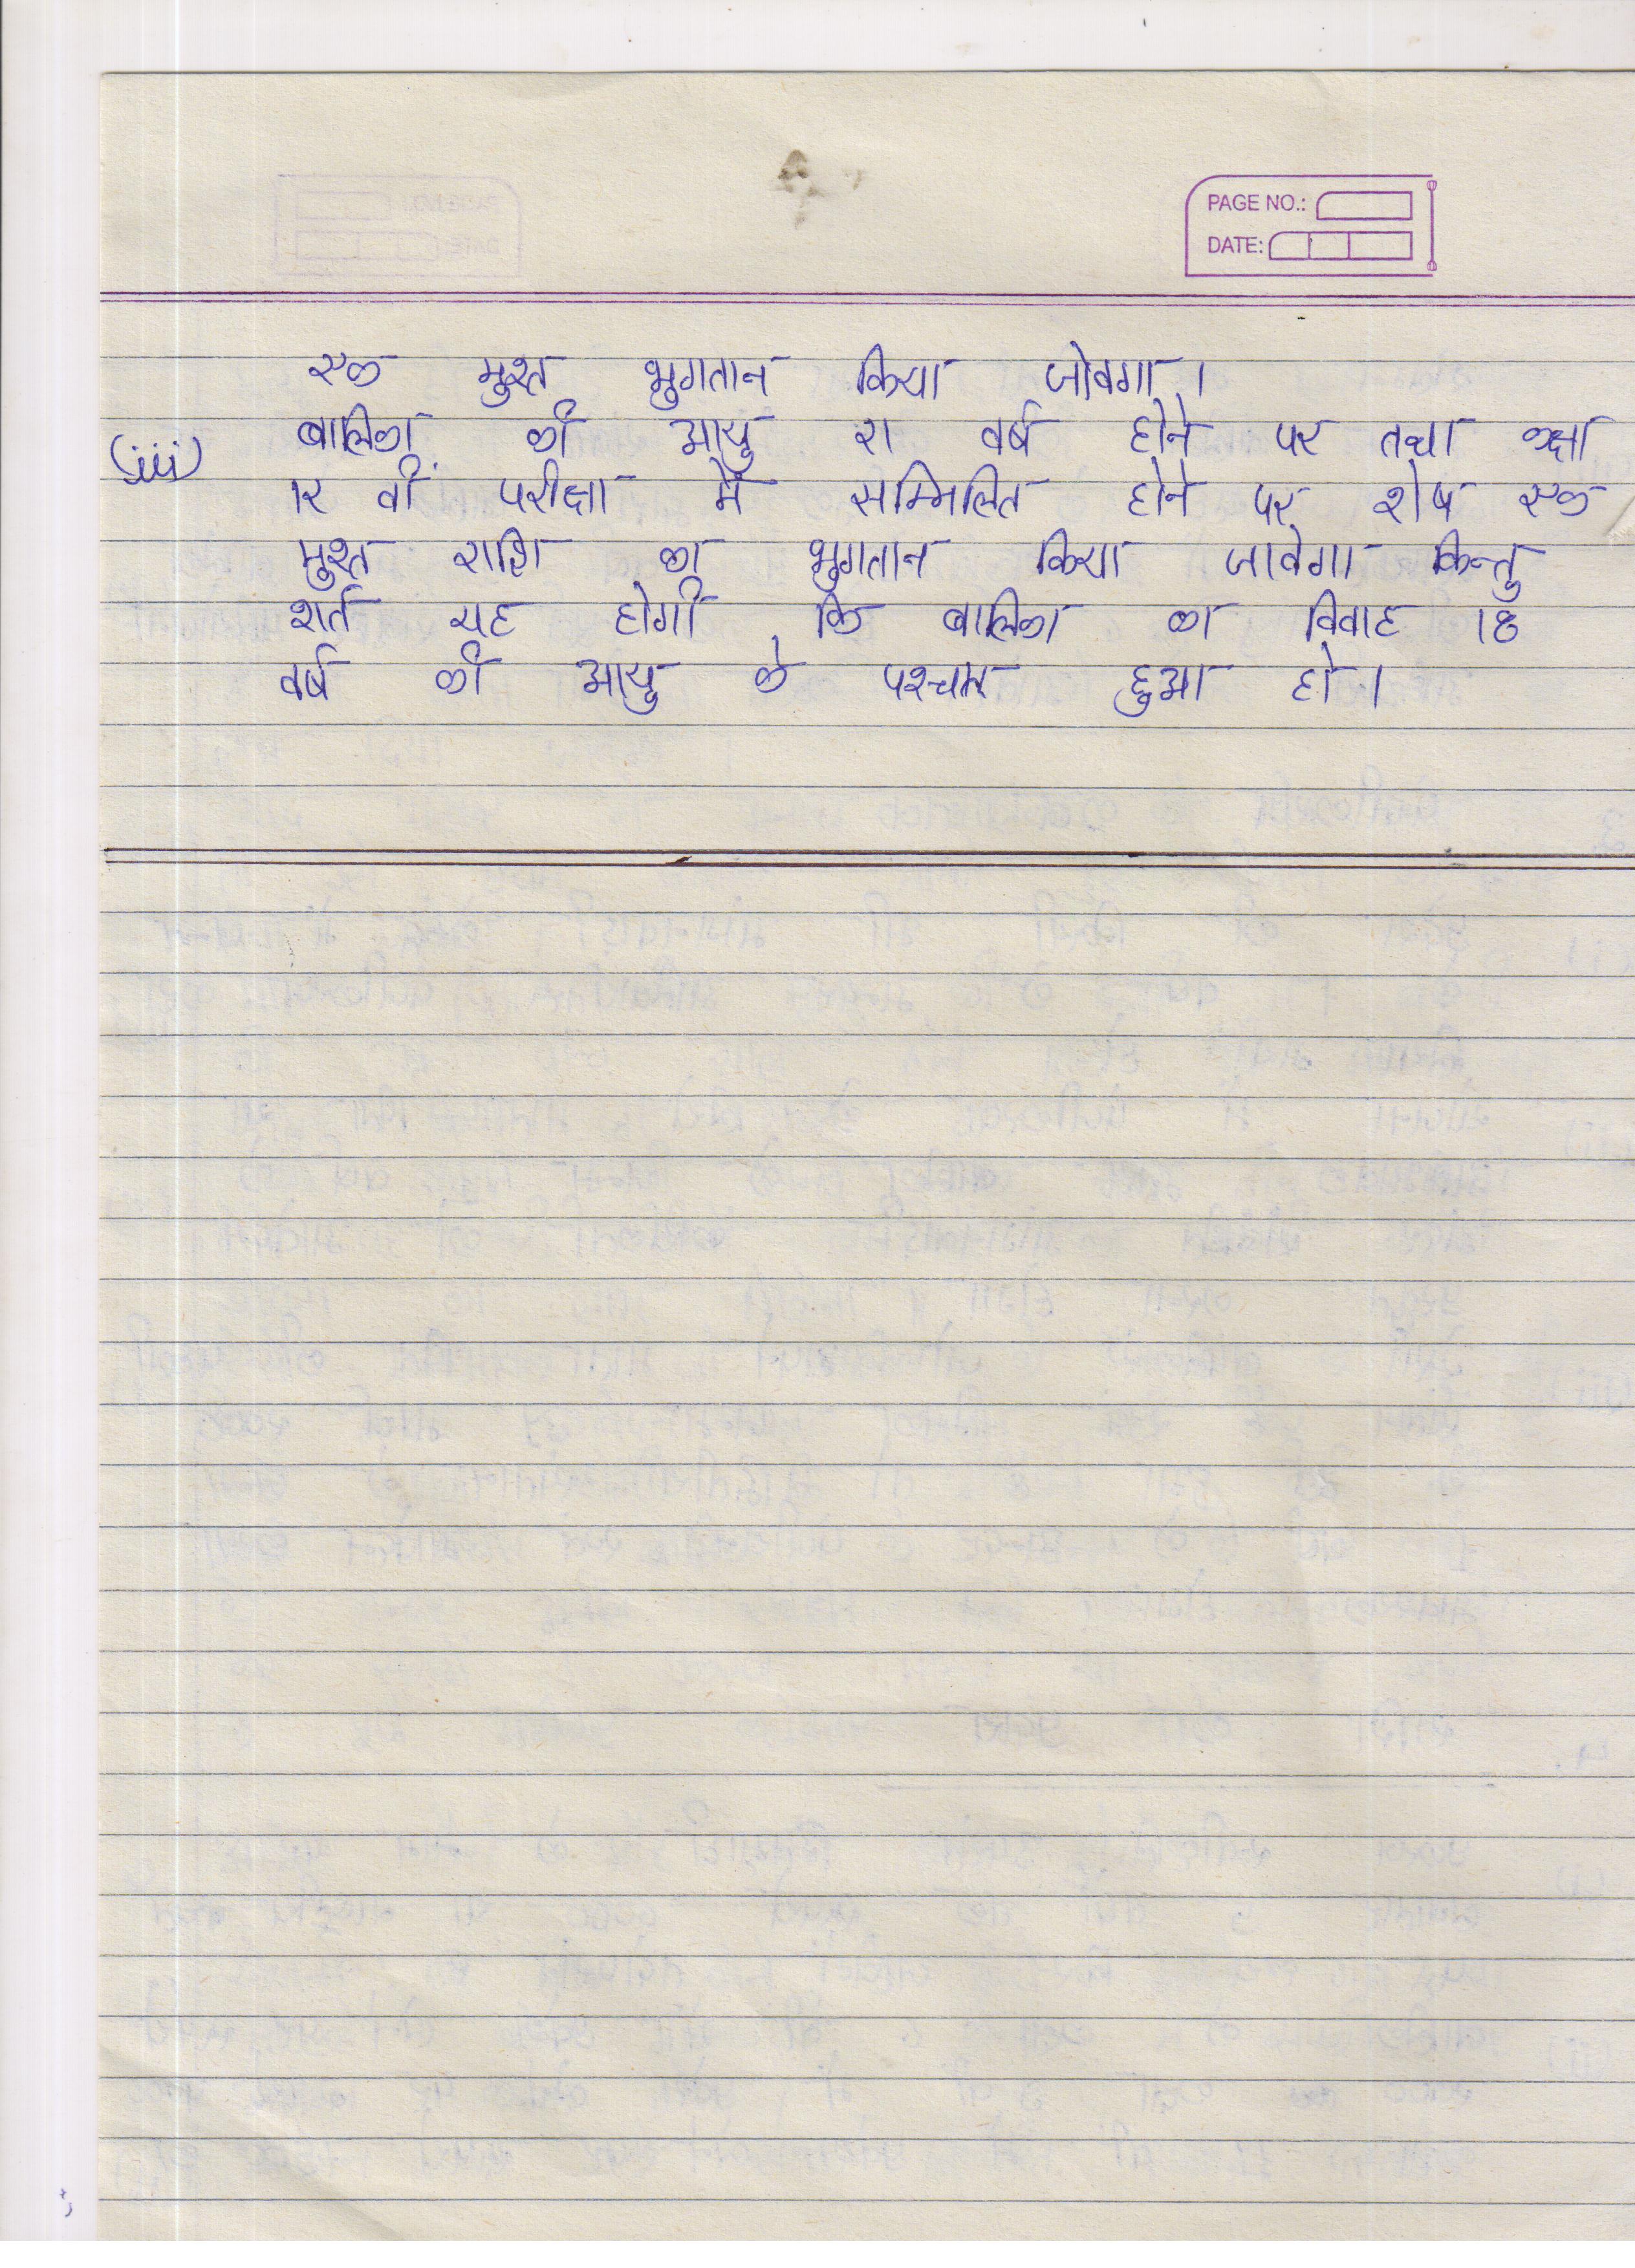 PAGE NO.:
DATE:
एक मुश्त भुगतान किया जोवगा ।
(iii) बालिका की आयु २१ वर्ष होने पर तथा कक्षा
१२ वीं परीक्षा में सम्मिलित होने पर शेष एक
मुश्त राशि का भुगतान किया जावेगा किन्तु
शर्त यह होगी कि बालिका का विवाह 18
वर्ष की आयु के पश्चात हुआ हो ।